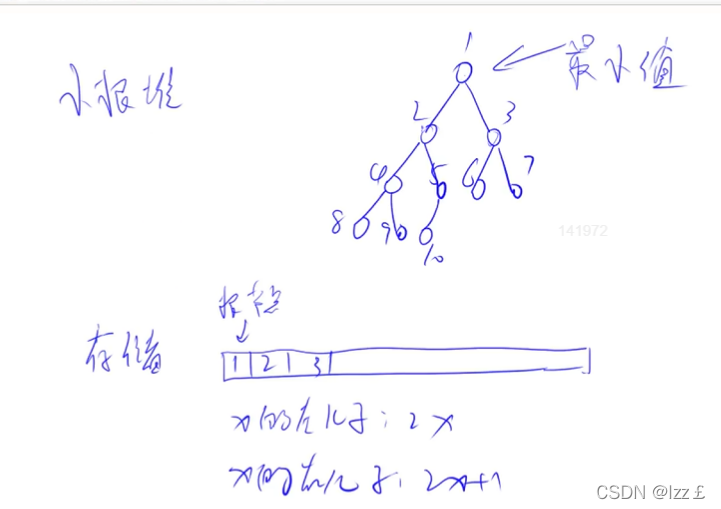 小根堆
最小值
1
2 3
4 5 6 7
8 9 10
141972
根节点
存储
1 2 3
x的左儿子: 2x
x的右儿子: 2x+1
CSDN @lzz£